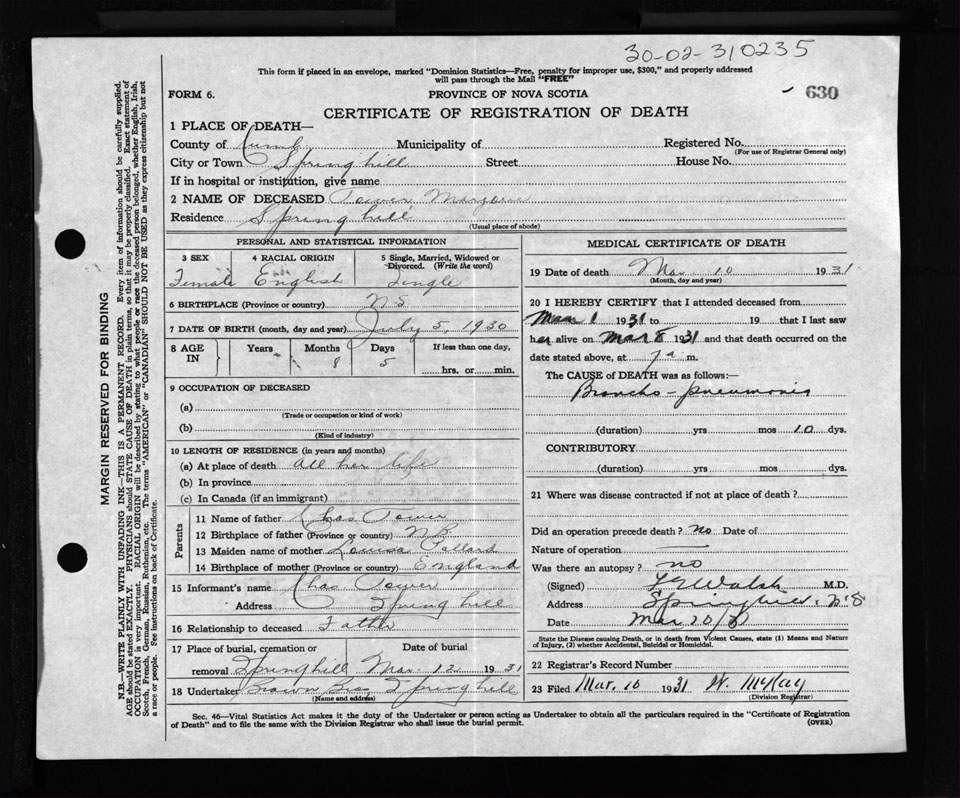 30-02-310235
This form if placed in an envelope, marked "Dominion Statistics—Free, penalty for improper use, $300," and properly addressed
will pass through the Mail "FREE"
FORM 6. PROVINCE OF NOVA SCOTIA 630
CERTIFICATE OF REGISTRATION OF DEATH
1 PLACE OF DEATH—
County of Cumb Municipality of Registered No.
(For use of Registrar General only)
City or Town Springhill Street House No.
If in hospital or institution, give name
2 NAME OF DECEASED Tower Marjorie
Residence Springhill
(Usual place of abode)
PERSONAL AND STATISTICAL INFORMATION
3 SEX 4 RACIAL ORIGIN 5 Single, Married, Widowed or
Divorced. (Write the word)
Female English Single
6 BIRTHPLACE (Province or country) N.S.
7 DATE OF BIRTH (month, day and year) July 5, 1930
8 AGE IN Years Months Days If less than one day,
8 5 hrs. or min.
9 OCCUPATION OF DECEASED
(a)
(Trade or occupation or kind of work)
(b)
(Kind of industry)
10 LENGTH OF RESIDENCE (in years and months)
(a) At place of death all her life
(b) In province
(c) In Canada (if an immigrant)
Parents
11 Name of father Chas Tower
12 Birthplace of father (Province or country) N.B.
13 Maiden name of mother Louisa Pollard
14 Birthplace of mother (Province or country) England
15 Informant's name Chas Tower
Address Springhill
16 Relationship to deceased Father
17 Place of burial, cremation or Date of burial
removal Springhill Mar. 12 1931
18 Undertaker Brown Bros Springhill
(Name and address)
MEDICAL CERTIFICATE OF DEATH
19 Date of death Mar 10 1931
(Month, day and year)
20 I HEREBY CERTIFY that I attended deceased from
Mar 1 1931 to 19 that I last saw
her alive on Mar 8 1931 and that death occurred on the
date stated above, at 7 a m.
The CAUSE of DEATH was as follows:—
Broncho-pneumonia
(duration) yrs mos 10 dys.
CONTRIBUTORY
(duration) yrs. mos. dys.
21 Where was disease contracted if not at place of death?
Did an operation precede death? no Date of
Nature of operation —
Was there an autopsy? no
(Signed) Walsh M.D.
Address Springhill, N.S
Date Mar 20/31
State the Disease causing Death, or in death from Violent Causes, state (1) Means and Nature
of Injury, (2) whether Accidental, Suicidal or Homicidal.
22 Registrar's Record Number
23 Filed Mar. 10 1931 W. McKay
(Division Registrar)
Sec. 46—Vital Statistics Act makes it the duty of the Undertaker or person acting as Undertaker to obtain all the particulars required in the "Certificate of Registration
of Death" and to file the same with the Division Registrar who shall issue the burial permit. (OVER)
MARGIN RESERVED FOR BINDING
N.B.—WRITE PLAINLY WITH UNFADING INK—THIS IS A PERMANENT RECORD. Every item of information should be carefully supplied.
AGE should be stated EXACTLY. PHYSICIANS should STATE CAUSE OF DEATH in plain terms, so that it may be properly classified. Exact statement of
OCCUPATION is very important. RACIAL ORIGIN will be described by stating to what people or race the deceased person belonged, whether English, Irish,
Scotch, French, German, Russian, Ruthenian, etc. The terms "AMERICAN" or "CANADIAN" SHOULD NOT BE USED as they express citizenship but not
a race or people. See instructions on back of Certificate.